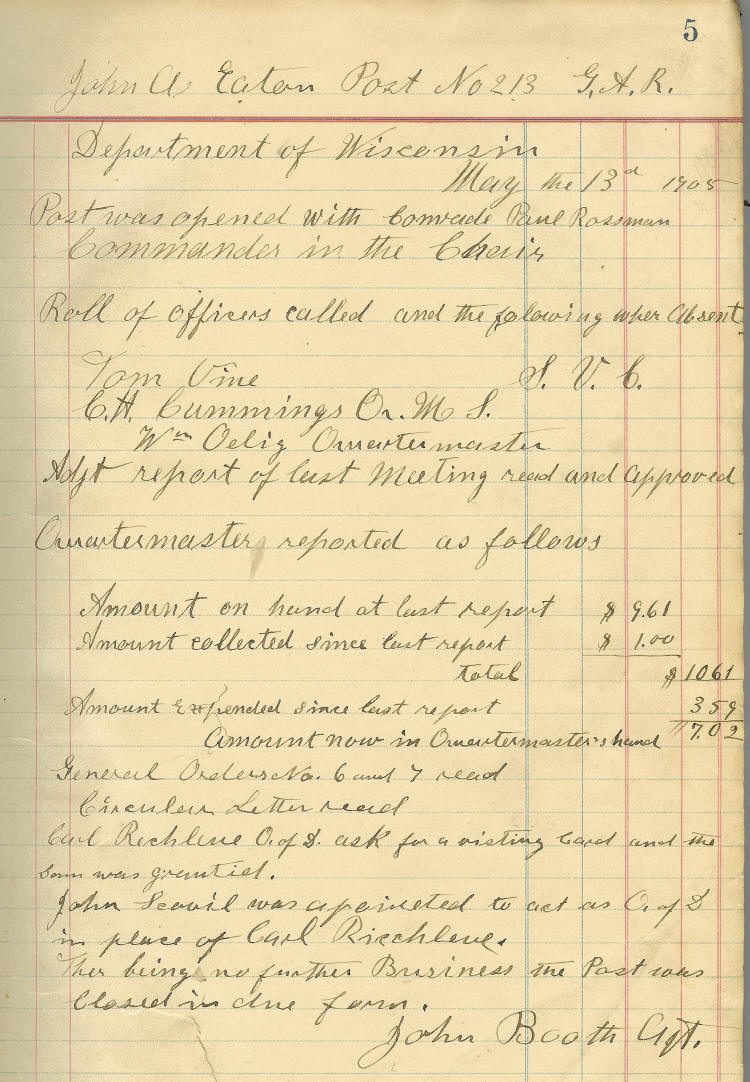 5
John A Eaton Post No 213 G. A. R.
Department of Wisconsin
May the 13d 1905
Post was opened with Comrade Paul Rossman
Commander in the Chair
Roll of officers called and the folowing wher Absent
Tom Vine S. V. C.
C. H. Cummings Qr. M S.
Wm Oelig Quartermaster
Adjt report of last Meeting read and approved
Quartermaster reported as follows
Amount on hand at last report $ 9.61
Amount collected since last report $ 1.00
total $ 1061
Amount Expended since last report 359
Amount now in Quartermaster's hand " 7.02
General Orders No. 6 and 7 read
Circular Letter read
Carl Riechlene O. of D. ask for a visting Card and the
Sam was grantied.
John Scovil was apointed to act as O. of D
in place of Carl Riechlene.
Ther being no further Business the Post was
Closed in due form.
John Booth Agt.